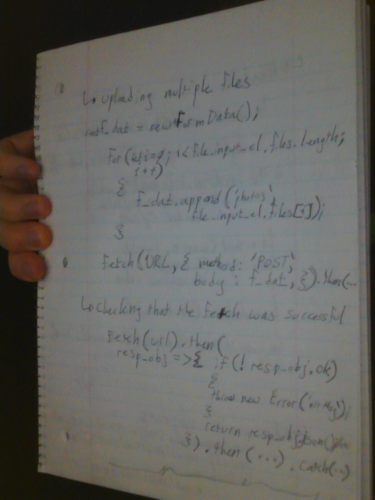 ↳ uploading multiple files
const f_dat = new FormData();
for (let i=0; i<file_input_el.files.length;
i++)
{
f_dat.append('photos',
file_input_el.files[i]);
}
fetch(URL, { method: 'POST',
body : f_dat, }).then(...
↳ checking that the fetch was successful
fetch(url).then(
resp_obj => { if (! resp_obj.ok)
{
throw new Error('err msg');
}
return resp_obj.json()
}).then(...).catch(...)